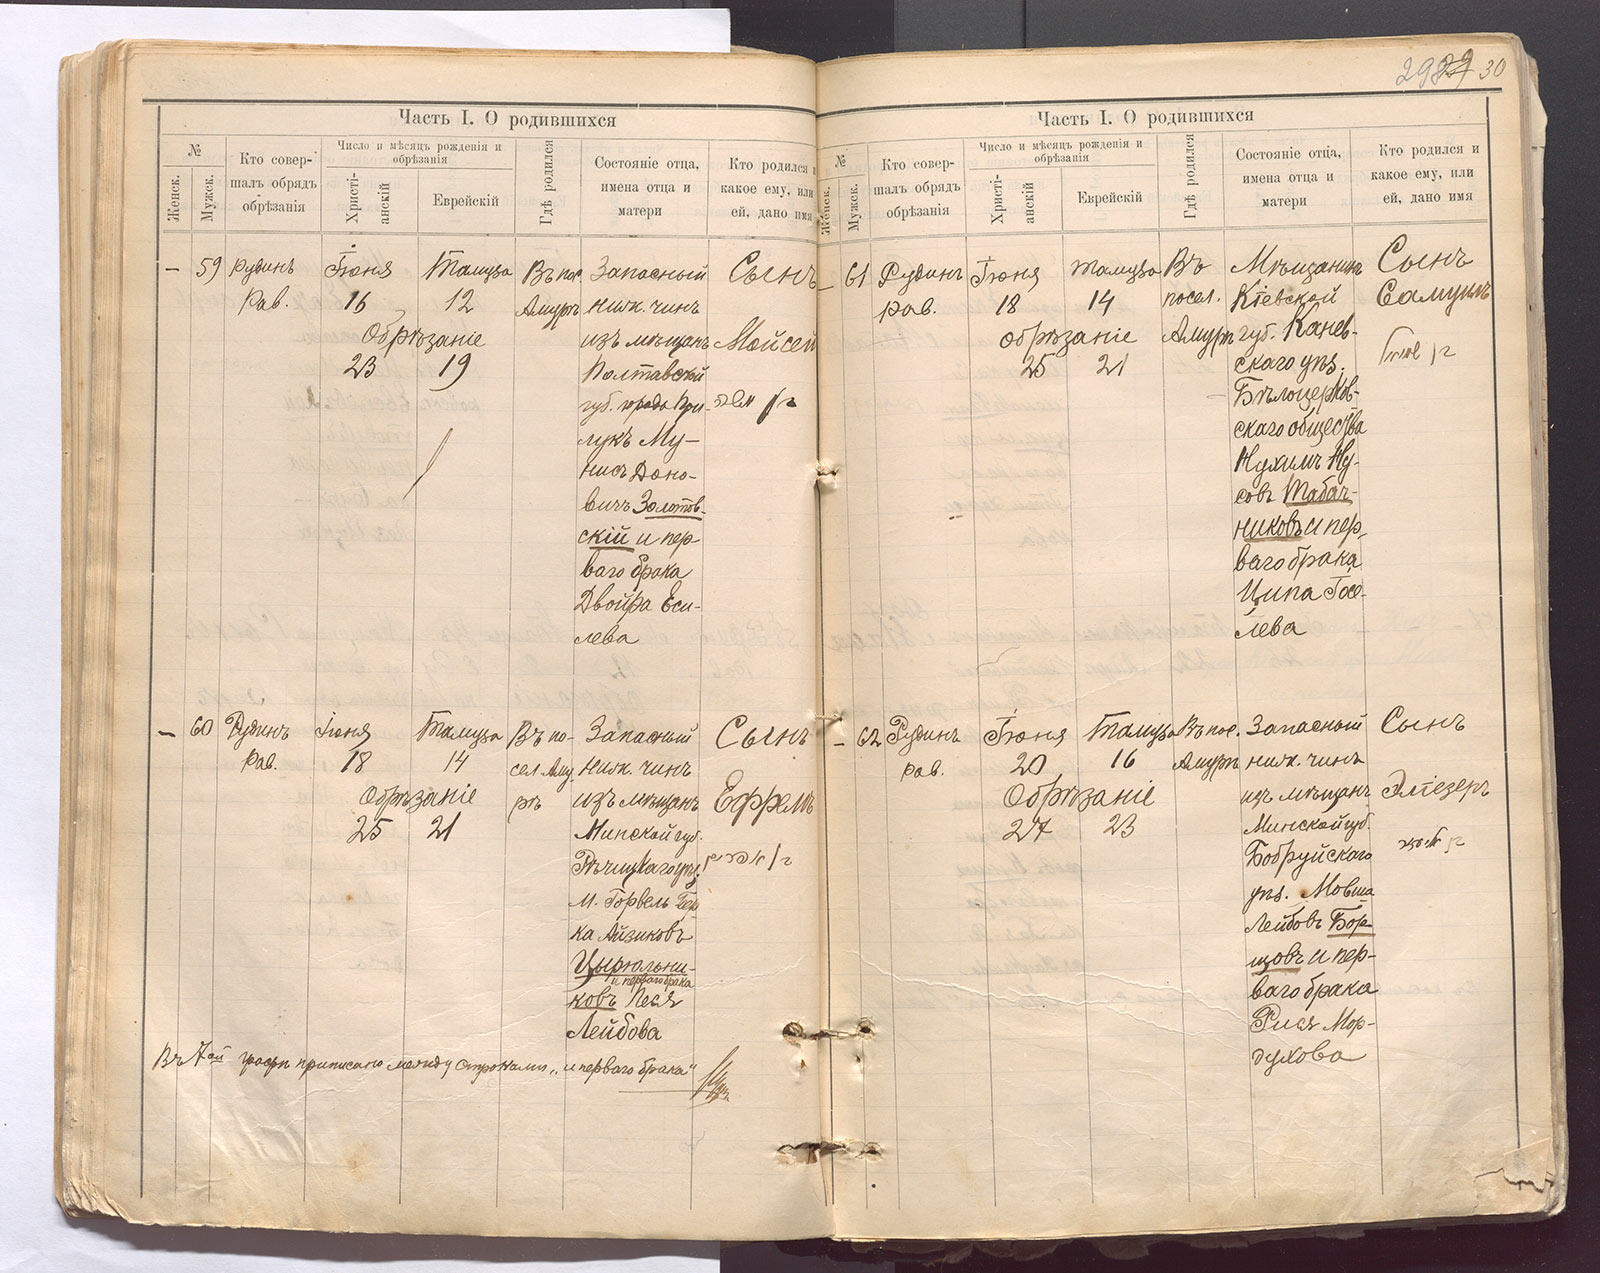 2989 30
Часть I. О родившихся
№
Женск.
Мужск.
Кто совер-
шалъ обрядъ
обрѣзанія
Число и мѣсяцъ рожденія и
обрѣзанія
Христі-
анскій
Еврейскій
Гдѣ родился
Состояніе отца,
имена отца и
матери
Кто родился и
какое ему, или
ей, дано имя
— 59
Рудинъ
Рав.
Іюня
16
Тамуза
12
Обрѣзаніе
23 19
Въ пос.
Амуръ
Запасный
ниж. чинъ
изъ мѣщанъ
Полтавской
губ. города При-
лукъ Му-
нисъ Доно-
вичъ Золотов-
скій и пер
ваго брака
Двойра Еси-
лева
Сынъ
Мойсей
— 60
Рудинъ
Рав.
Іюня
18
Тамуза
14
Обрѣзаніе
25 21
Въ по-
сел. Аму-
ръ
Запасный
ниж. чинъ
изъ мѣщанъ
Минской губ.
Рѣчицкаго уѣз.
м. Горвель Бер
ка Айзиковъ
Цырюльни-
и перваго брака
ковъ Песя
Лейбова
Сынъ
Ефремъ
Въ 7ой графѣ приписано между строками „и перваго брака"
Часть I. О родившихся
№
Женск.
Мужск.
Кто совер-
шалъ обрядъ
обрѣзанія
Число и мѣсяцъ рожденія и
обрѣзанія
Христі-
анскій
Еврейскій
Гдѣ родился
Состояніе отца,
имена отца и
матери
Кто родился и
какое ему, или
ей, дано имя
— 61
Рудинъ
Рав.
Іюня
18
Тамуза
14
Обрѣзаніе
25 21
Въ
посел.
Амуръ
Мѣщанинъ
Кіевской
губ. Канев-
скаго уѣз.
Бѣлоцерков-
скаго общества
Нухимъ Ну-
совъ Табач-
никовъ и пер-
ваго брака
Ципа Іосе-
лева
Сынъ
Самуилъ
— 62
Рудинъ
Рав.
Іюня
20
Тамуза
16
Обрѣзаніе
27 23
Въ пос.
Амуръ
Запасный
ниж. чинъ
изъ мѣщанъ
Минской губ.
Бобруйскаго
уѣз. Мовша
Лейбовъ Бор-
щовъ и пер-
ваго брака
Рися Мор-
духова
Сынъ
Эліезеръ